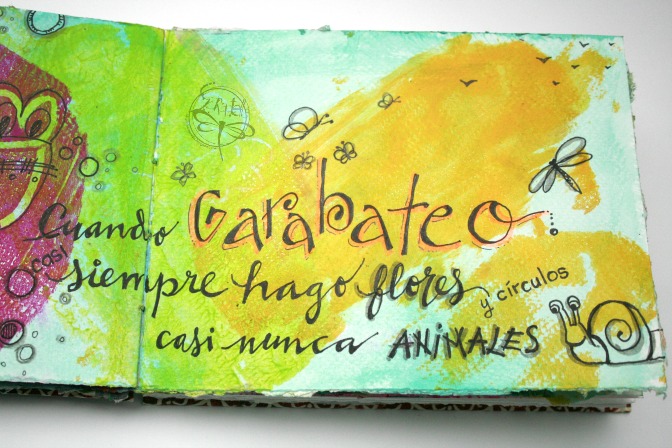 Cuando Garabateo
casi
siempre hago flores
y círculos
casi nunca ANiMALES